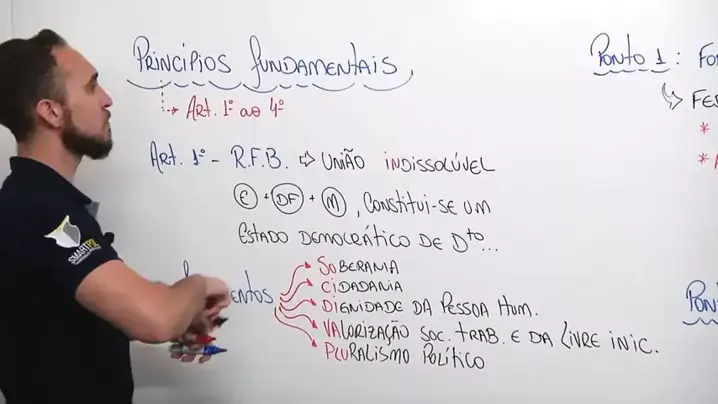 Princípios fundamentais
Art. 1º ao 4º
Art. 1º - R.F.B. ⇨ União indissolúvel
E + DF + M, constitui-se um
Estado Democrático de Dto...
Soberania
Cidadania
Dignidade da Pessoa Hum.
Valorização Soc. trab. e da Livre inic.
Pluralismo Político
Ponto 1: